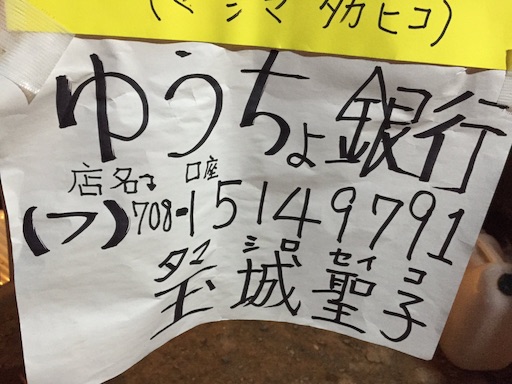 (マシマ タカヒコ)
ゆうちょ銀行
店名 口座
(フ)708-15149791
タマ シロ セイ コ
玉城聖子